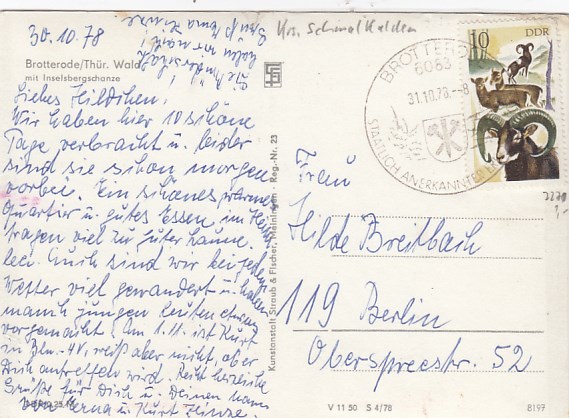 30.10.78
Krs. Schmalkalden
Brotterode/Thür. Wald
mit Inselsbergschanze
Liebes Hildchen!
Wir haben hier 10 schöne
Tage verbracht u. leider
sind sie schon morgen
vorbei. Ein schönes warmes
Quartier u. gutes Essen im
tragen viel zu guter Laune
bei. Auch sind wir bei jedem
Wetter viel gewandert u. haben
manch jungen Leuten etwas
vorgemacht. Am 1.11. ist Kurt
in Bln. - weiß aber nicht, ob er
Dich antreffen wird. Recht herzliche
Grüße für Dich u. Deinen Mann
von Erna u. Kurt Hinze.
Kunstanstalt Straub & Fischer, Meiningen · Reg.-Nr. 23
DDR
10
BROTTERODE
6063
31.10.78.-8
STAATLICH ANERKANNTER
Frau
Hilde Breitbach
119 Berlin
Oberspreestr. 52
V 11 50 S 4/78
8197